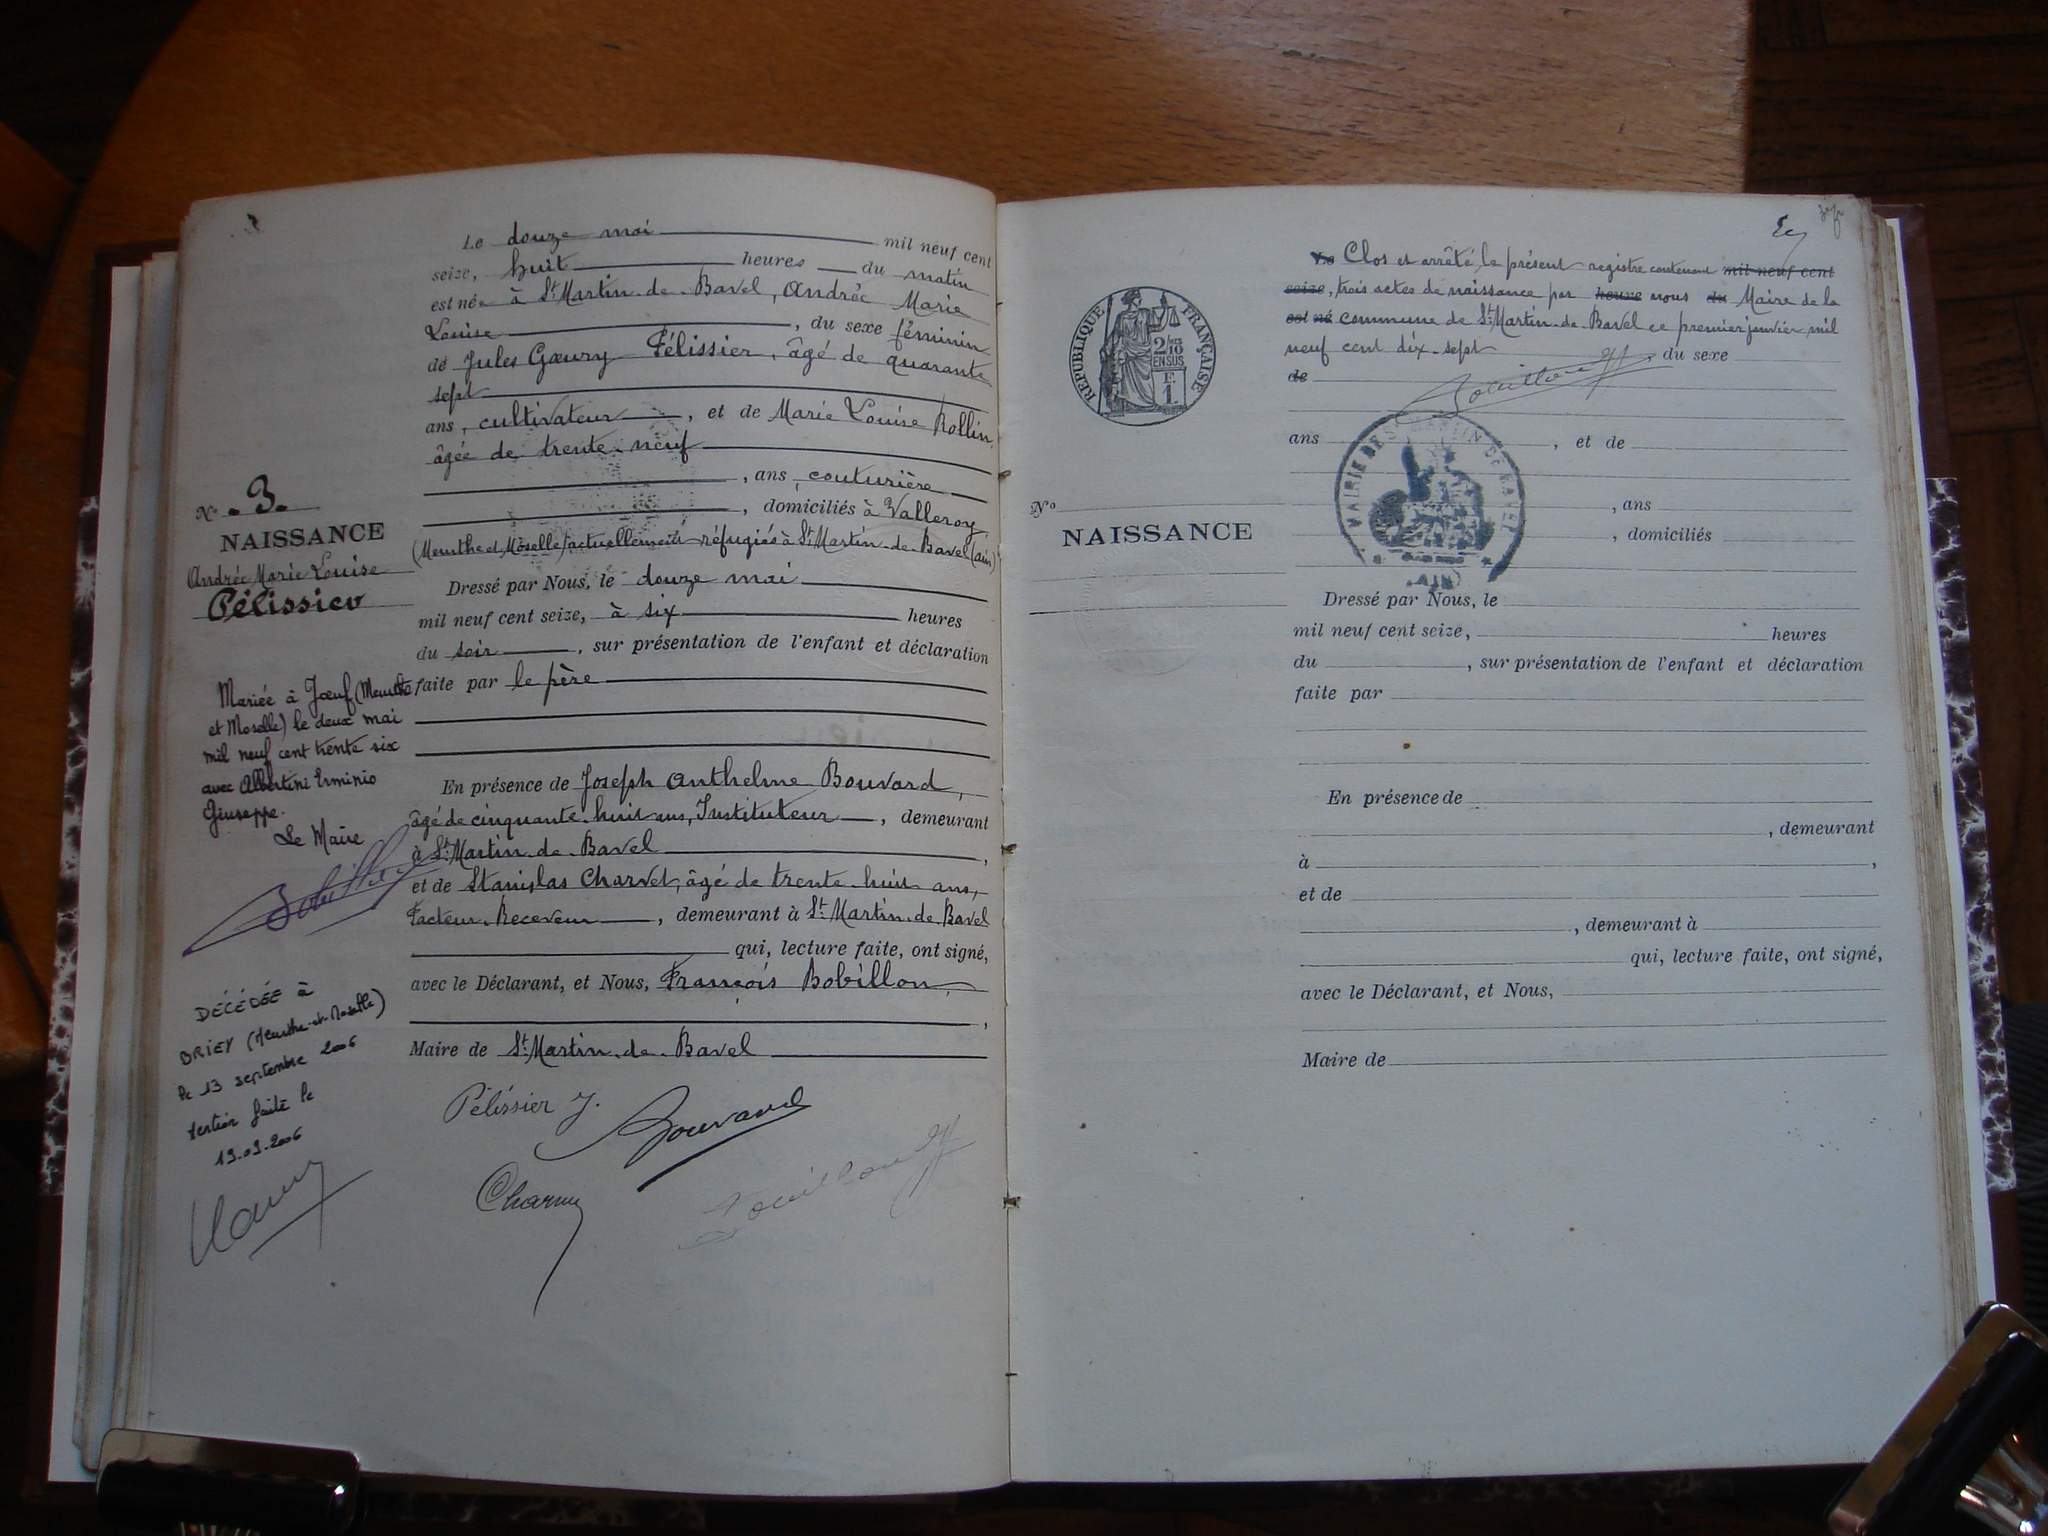 Le douze mai mil neuf cent
seize, huit heures du matin
est née à St Martin-de-Bavel, Andrée Marie
Louise, du sexe féminin
de Jules Gœury Pélissier, âgé de quarante
sept
ans, cultivateur, et de Marie Louise Rollin,
âgée de trente-neuf
, ans, couturière
, domiciliés à Valleroy
(Meurthe et Moselle) actuellement réfugiés à St Martin-de-Bavel (ain)
Dressé par Nous, le douze mai
mil neuf cent seize, à six heures
du soir, sur présentation de l'enfant et déclaration
faite par le père
En présence de Joseph Anthelme Bouvard,
âgé de cinquante-huit ans, Instituteur, demeurant
à St Martin-de-Bavel,
et de Stanislas Charvet, âgé de trente-huit ans,
Facteur-Receveur, demeurant à St Martin-de-Bavel
qui, lecture faite, ont signé,
avec le Déclarant, et Nous, François Bobillon,
,
Maire de St Martin-de-Bavel
Pélissier J.
Bouvard
Nº 3.
NAISSANCE
Andrée Marie Louise
Pélissier
Mariée à Jœuf (Meurthe
et Moselle) le deux mai
mil neuf cent trente six
avec Albertini Erminio
Giuseppe.
Le Maire
DÉCÉDÉE à
BRIEY (Meurthe-et-Moselle)
le 13 septembre 2006
mention faite le
19.09.2006
RÉPUBLIQUE FRANÇAISE
2/10
EN SUS
F.
1.
Nº
NAISSANCE
Le Clos et arrêté le présent registre contenant mil neuf cent
seize, trois actes de naissance par heure nous du Maire de la
est né commune de St Martin-de-Bavel ce premier janvier mil
neuf cent dix-sept, du sexe
de
ans, et de
, ans
, domiciliés
MAIRIE DE ST MARTIN DE BAVEL
(AIN)
Dressé par Nous, le
mil neuf cent seize, heures
du, sur présentation de l'enfant et déclaration
faite par
En présence de
, demeurant
à,
et de
, demeurant à
qui, lecture faite, ont signé,
avec le Déclarant, et Nous,
Maire de